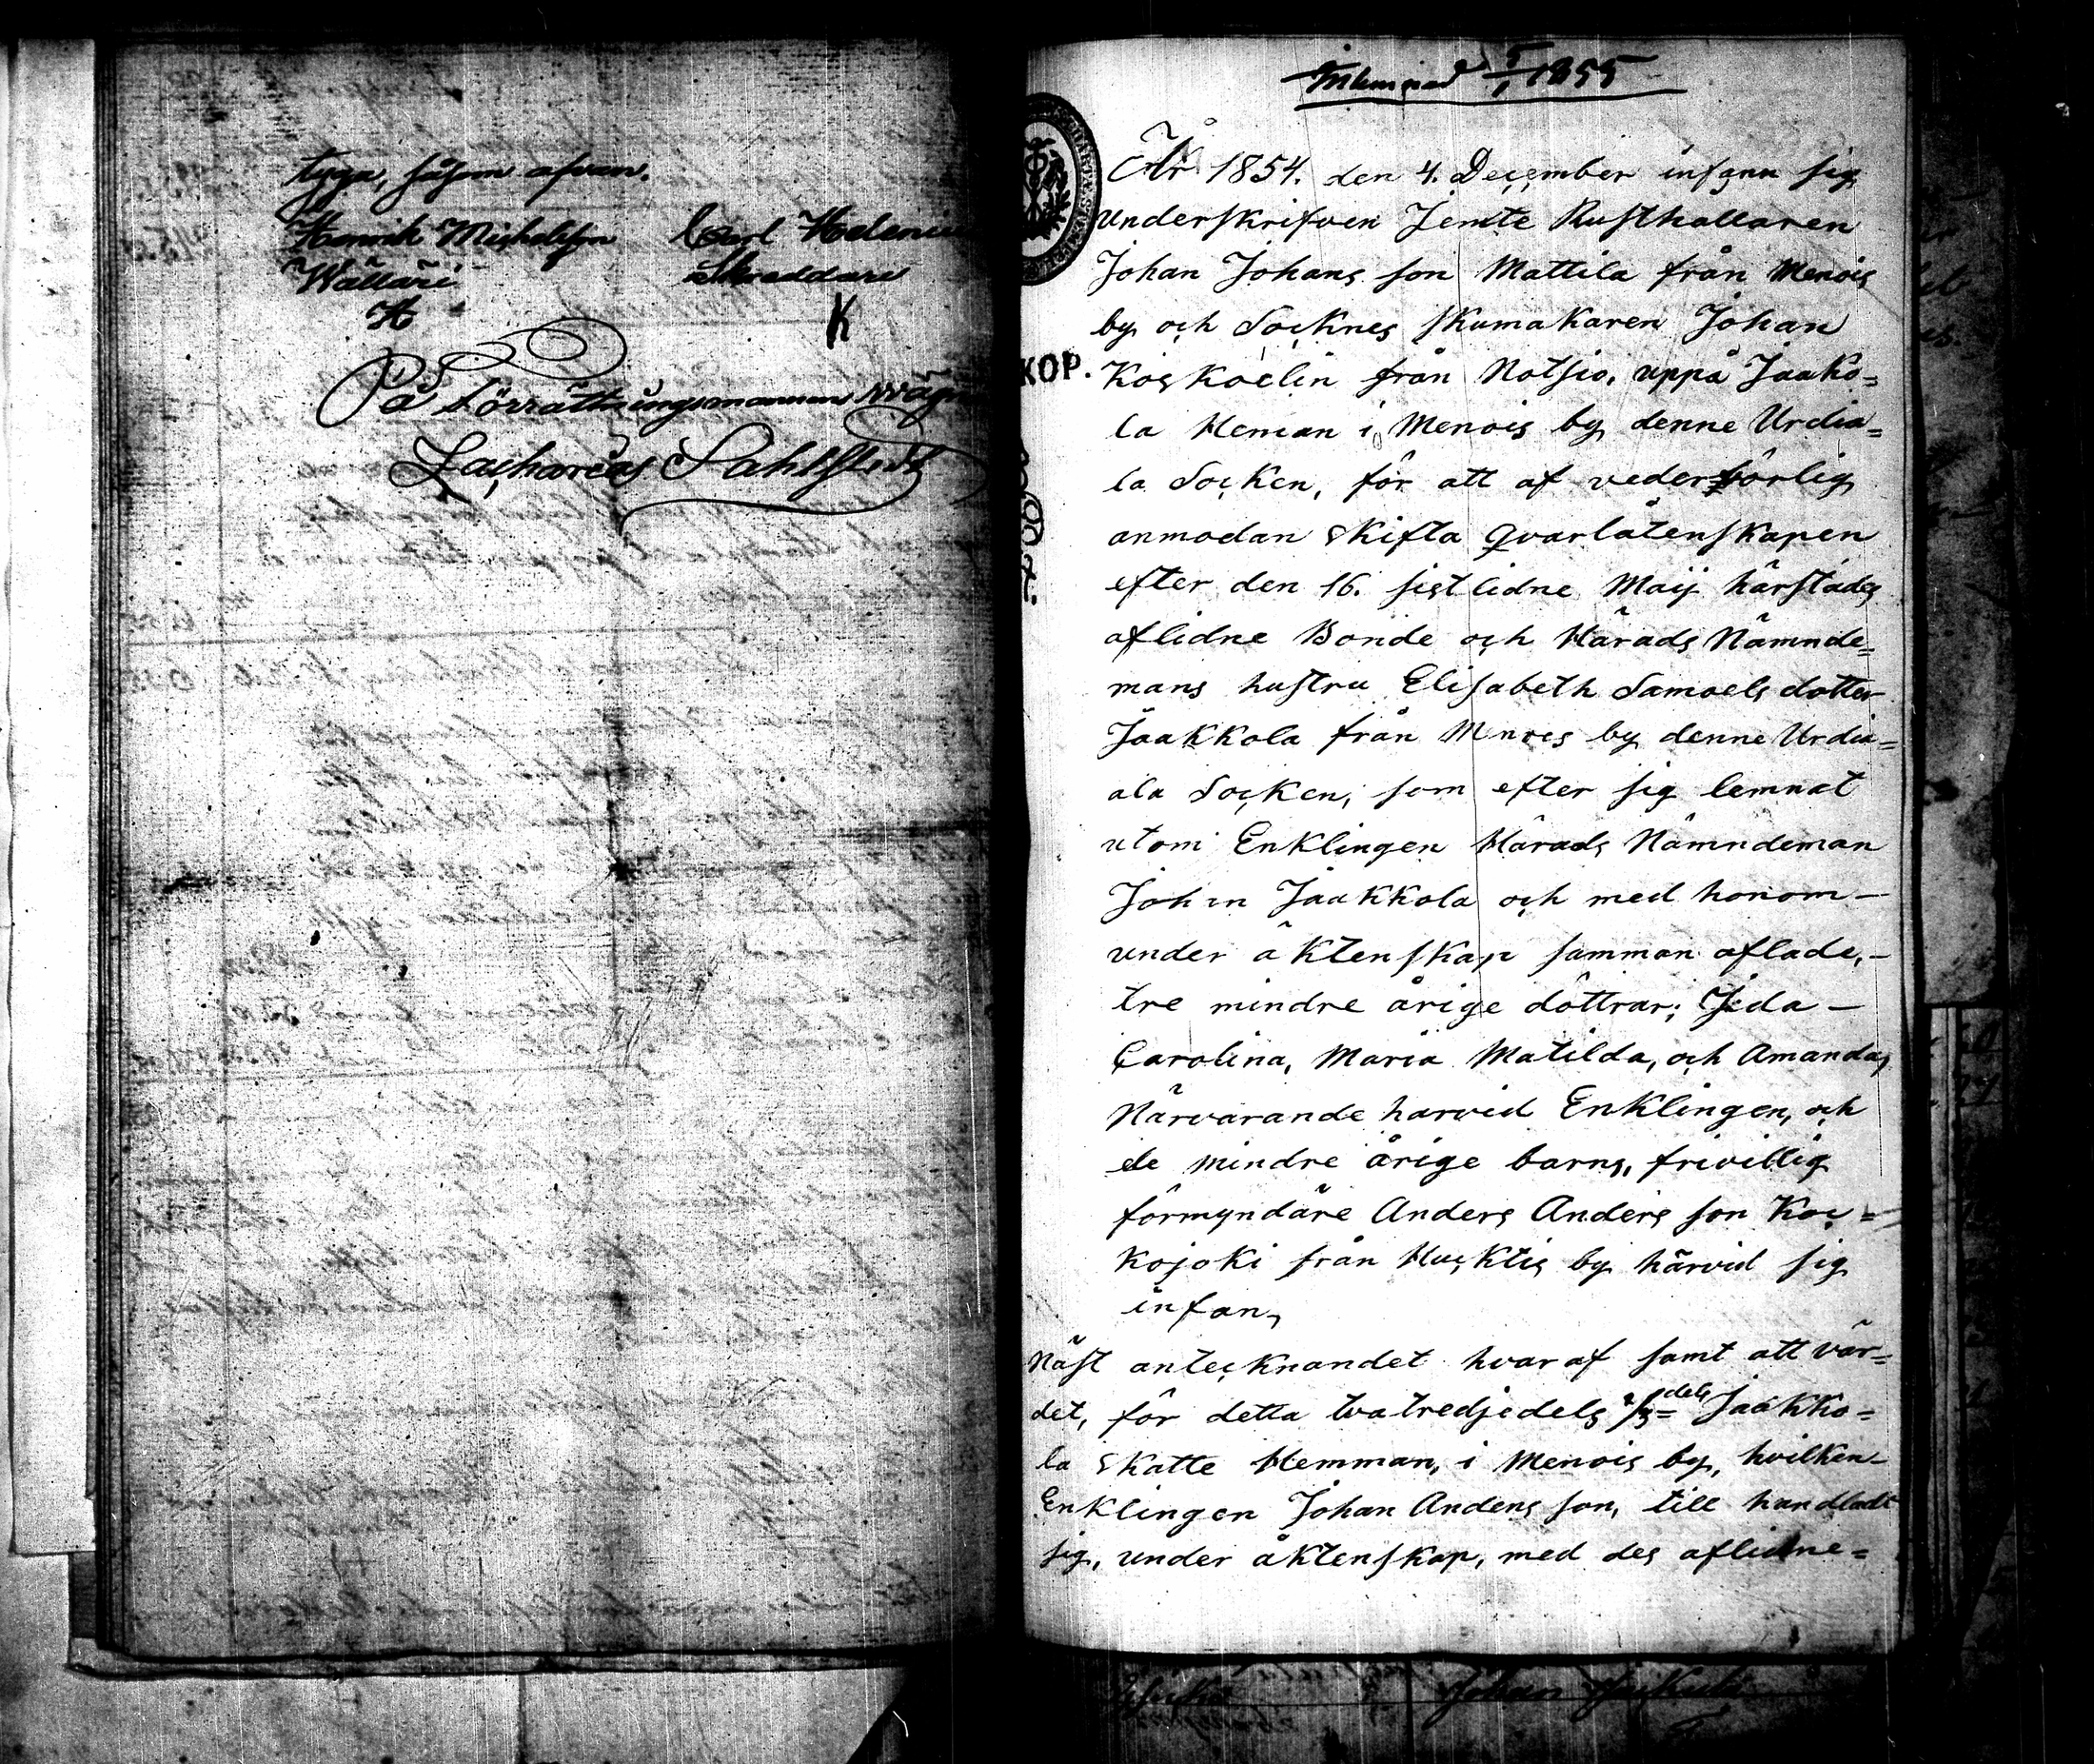 tyga, såsom ofvan.
Henrik Michelsson Carl Helenius
Wälläri Skräddare
H K
På Förrättningsmannens wägnar
Zacharias Sahlstedt
Inlemnad 5/1 1855
KOP.
År 1854. den 4. December infann sig
underskrifven Jemte Rusthållaren
Johan Johans son Mattila från Menois
by och Socknes skumakaren Johan
Koskoelin från Notsio, uppå Jaako=
la Heman i Menois by denne Urdia=
la Socken, för att af vederbörlig
anmodan skifta qvarlåtenskapen
efter den 16. sistlidne Maij härstädes
aflidne Bonde och Härads Nämnde=
mans hustru Elisabeth Samoels dotter
Jaakkola från Menois by denne Urdia=
ala Socken, som efter sig lemnat
utom Enklingen Härads Nämndeman
Johan Jaakkola och med honom —
under äktenskap samman aflade, —
tre mindre årige döttrar; Jda —
Carolina, Maria Matilda, och Amanda,
Närvarande harvid Enklingen, och
de mindre årige barns, frivillig
förmyndäre Anders Anders son Kos=
kojoki från Hucktis by härvid sig
infan,
Näst antecknandet hvaraf samt att vär=
det, för detta tvatredjedels 2/3=dels Jaakko=
la skatte Hemman, i Menois by, hvilken
Enklingen Johan Anders son, till handlat
sig, under äktenskap, med des aflidne=
Johan